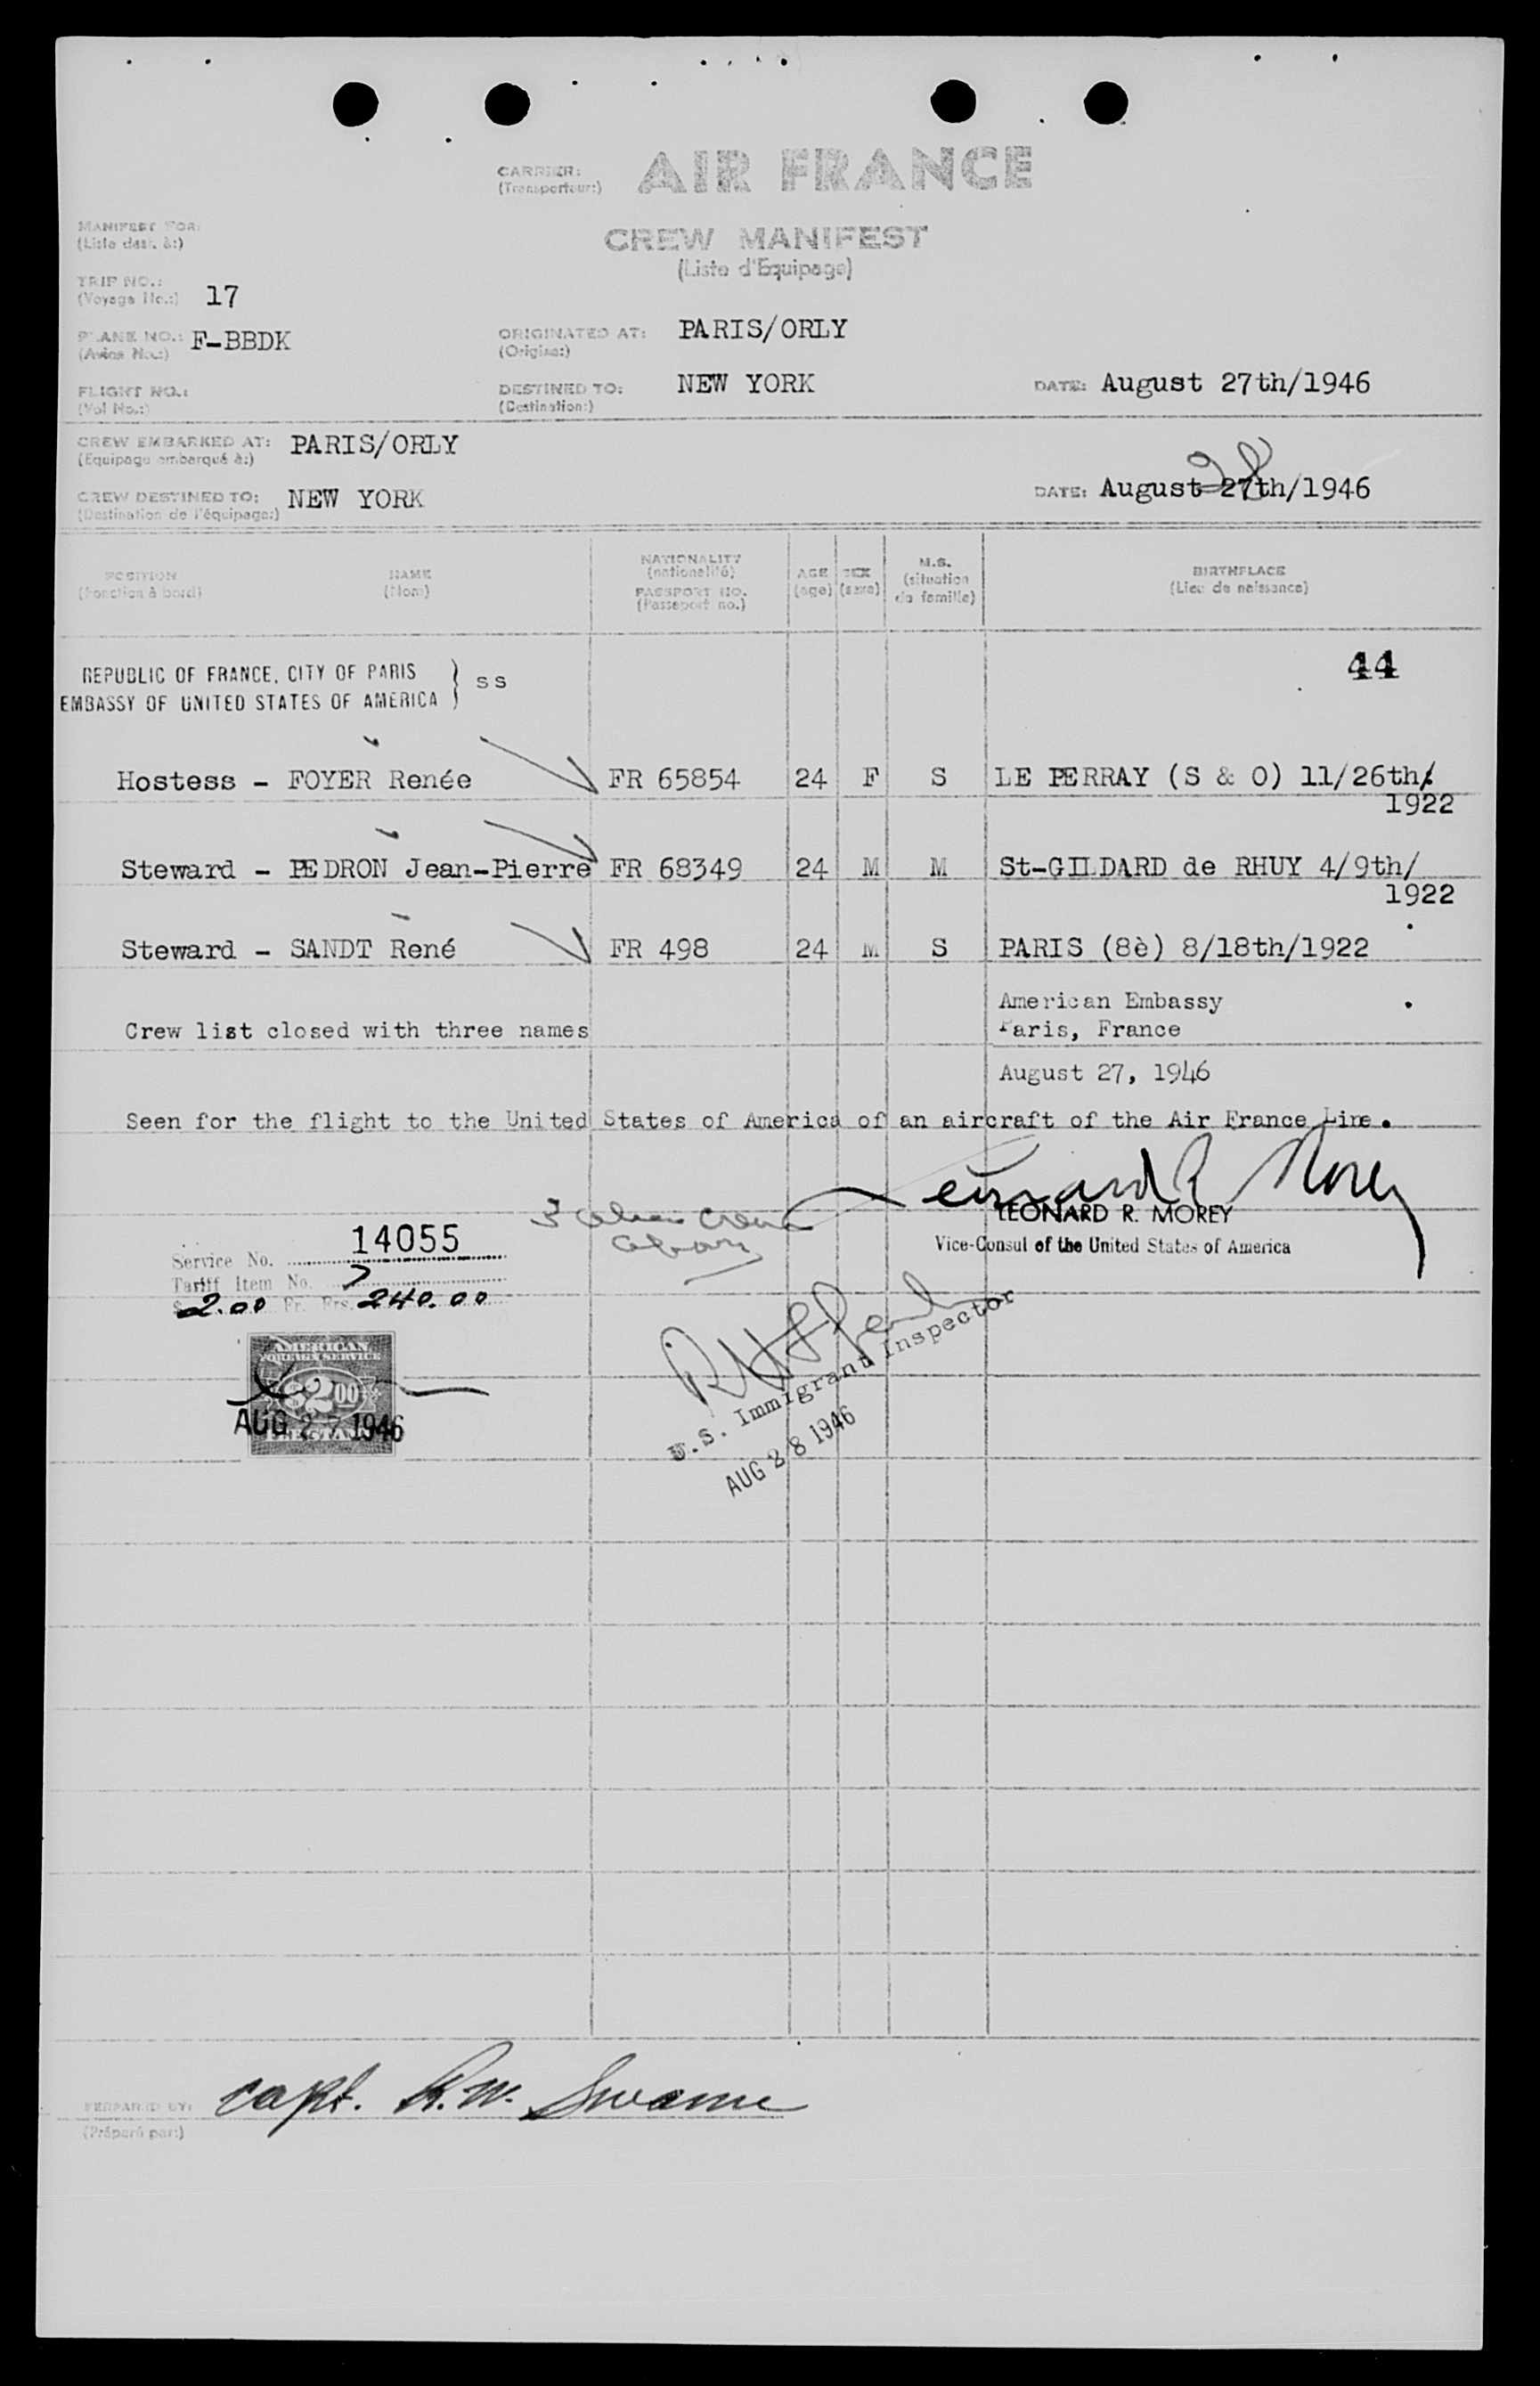 CARRIER: AIR FRANCE
(Transporteur:)
MANIFEST FOR:
(Liste dest. à:)
CREW MANIFEST
(Liste d'Equipage)
TRIP NO.: 17
(Voyage No.:)
PLANE NO.: F-BBDK
(Avion No.:)
ORIGINATED AT: PARIS/ORLY
(Origine:)
FLIGHT NO.:
(Vol No.:)
DESTINED TO: NEW YORK
(Destination:)
DATE: August 27th/1946
CREW EMBARKED AT: PARIS/ORLY
(Equipage embarqué à:)
28
CREW DESTINED TO: NEW YORK
(Destination de l'équipage:)
DATE: August 27th/1946
POSITION
(Fonction à bord)
NAME
(Nom)
NATIONALITY
(nationalité)
PASSPORT NO.
(Passeport no.)
AGE
(age)
SEX
(sexe)
M.S.
(situation
de famille)
BIRTHPLACE
(Lieu de naissance)
REPUBLIC OF FRANCE, CITY OF PARIS
EMBASSY OF UNITED STATES OF AMERICA } SS
44
Hostess - FOYER Renée FR 65854 24 F S LE PERRAY (S & O) 11/26th/
1922
Steward - PEDRON Jean-Pierre FR 68349 24 M M St-GILDARD de RHUY 4/9th/
1922
Steward - SANDT René FR 498 24 M S PARIS (8è) 8/18th/1922
American Embassy
Crew list closed with three names Paris, France
August 27, 1946
Seen for the flight to the United States of America of an aircraft of the Air France Line.
Leonard R Morey
LEONARD R. MOREY
Vice-Consul of the United States of America
3 alien crew
Service No. 14055
Tariff Item No. 7
$ 2.00 Fr. Frs. 240.00
AMERICAN
FOREIGN SERVICE
$2.00
FEE STAMP
AUG 27 1946
U.S. Immigrant Inspector
AUG 28 1946
PREPARED BY: Capt. R.W.
(Préparé par:)